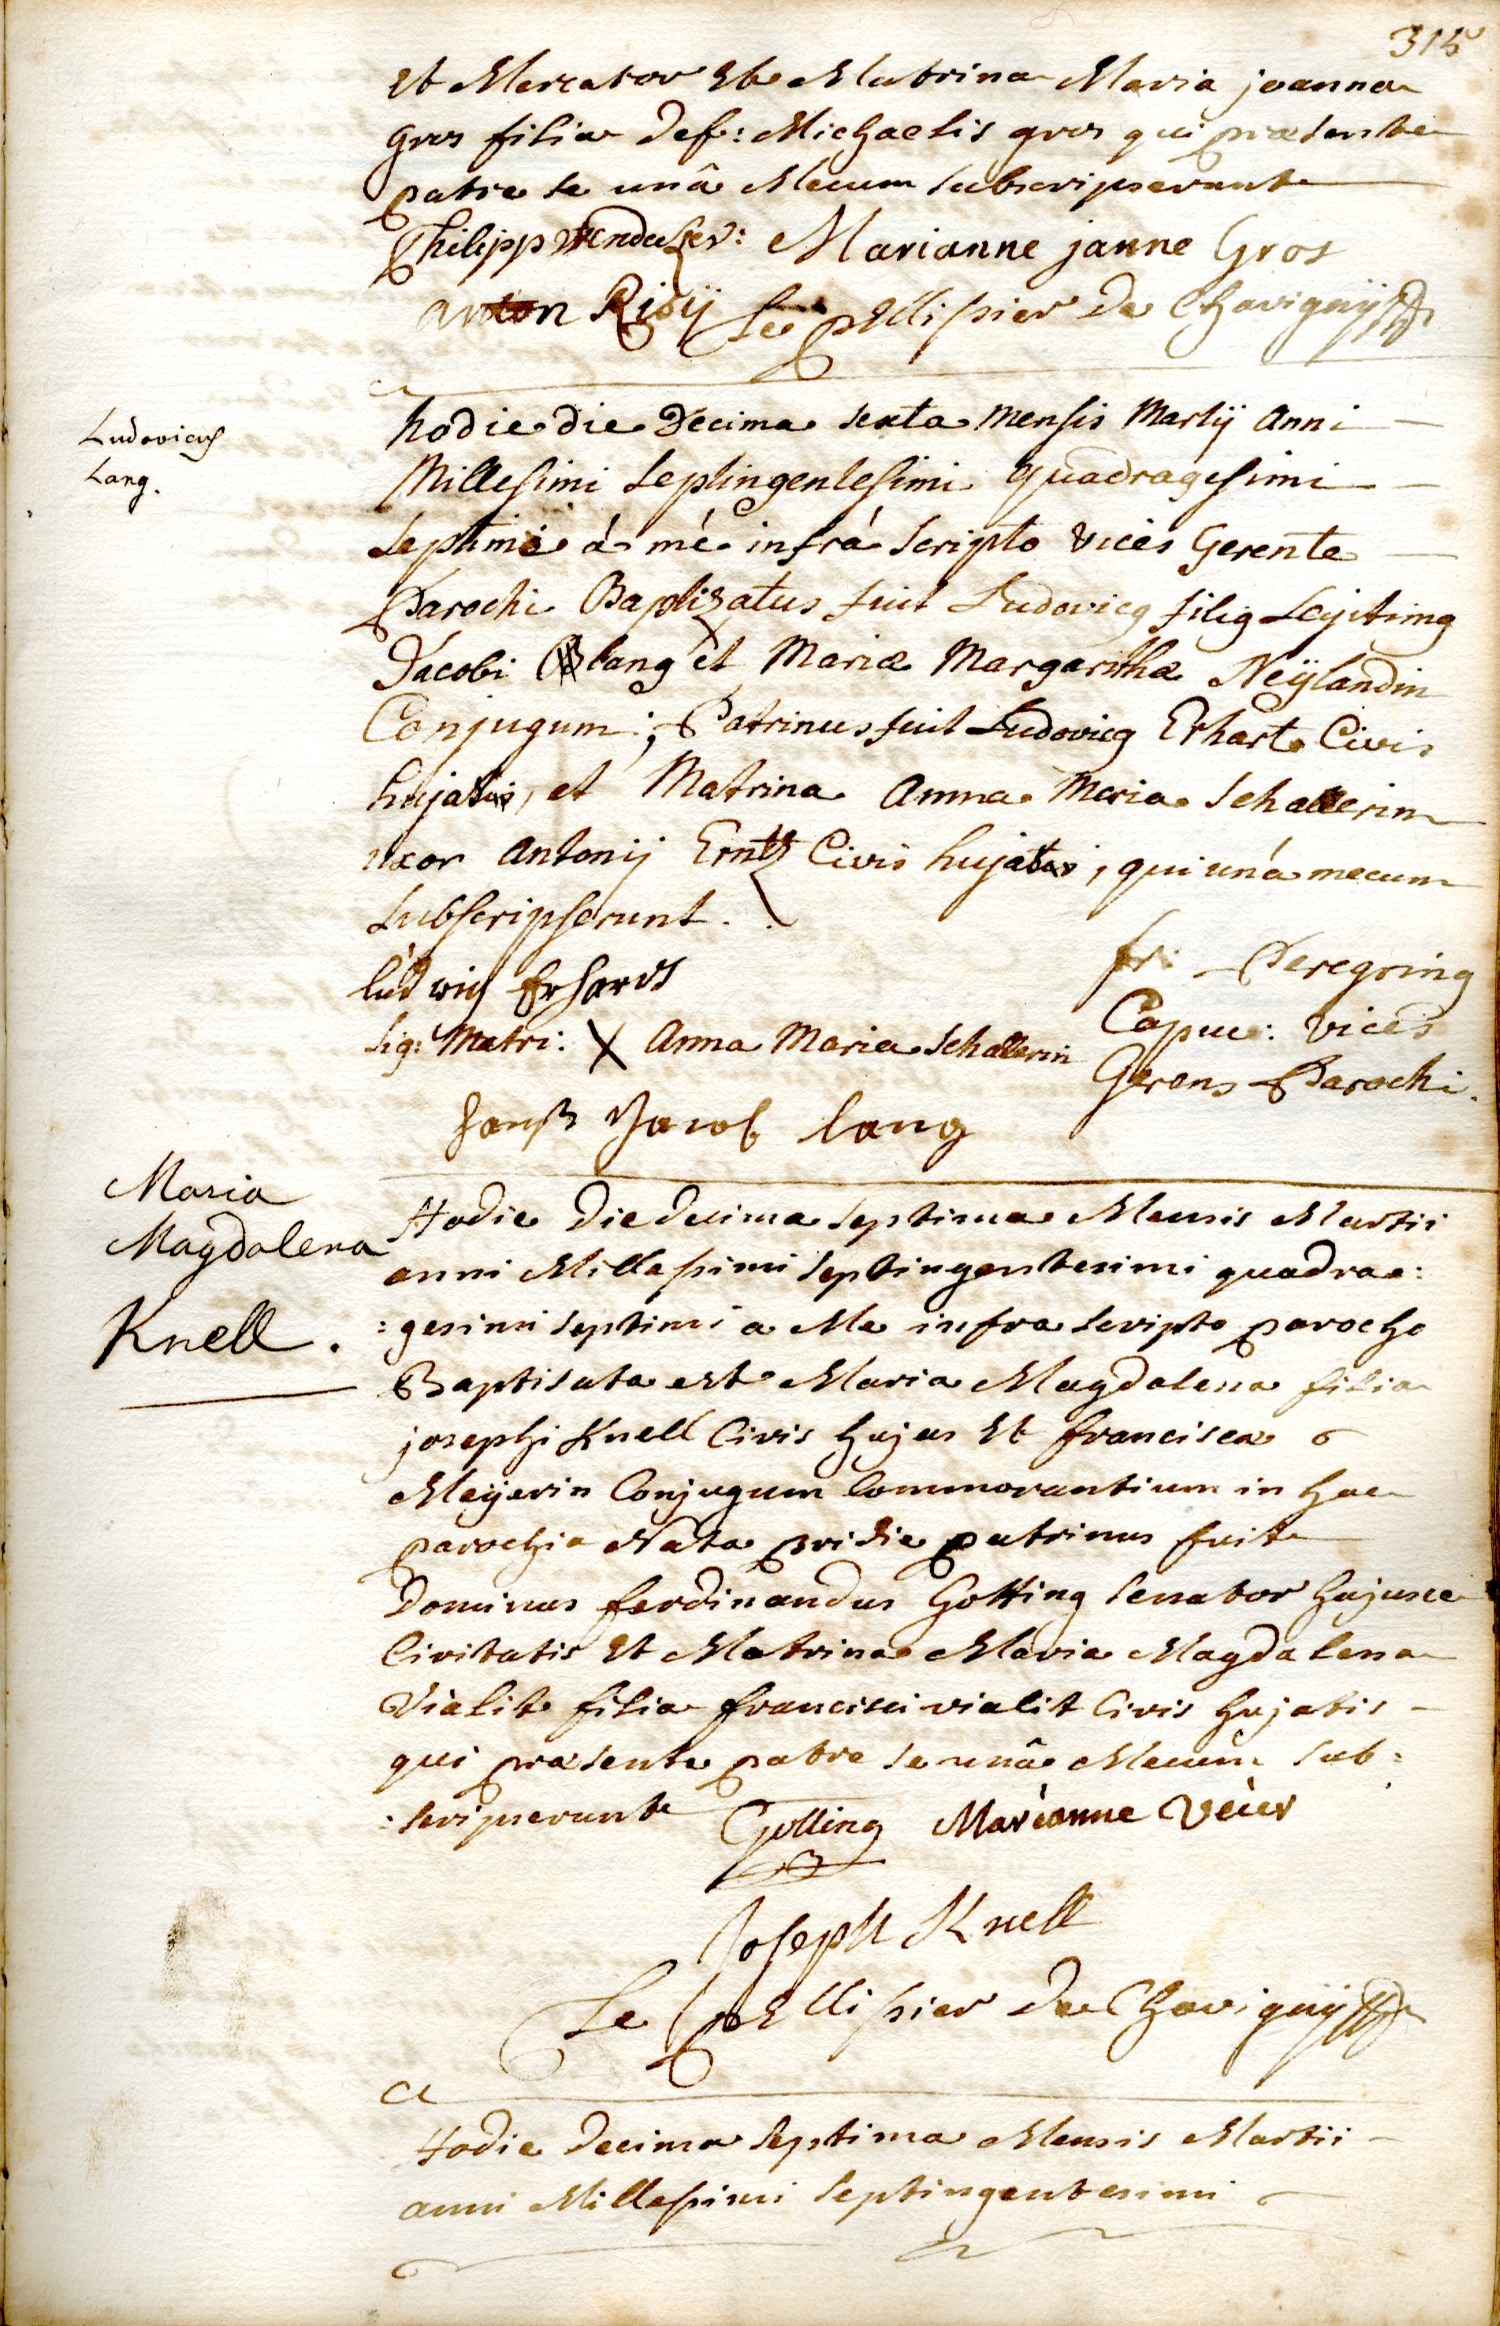 315
Et Mercator Et Matrina Maria joanna
gros filia def: Michaelis gros qui præsente
patre se unâ Mecum subscripserunt
Philipp Marianne janne Gros
anton Risÿ Le pEllissier De Chavignÿ
Ludovicus
Lang.
hodie die Decima sexta Mensis Martij Anni
Millesimi septingentesimi quadragesimi
septimi á mé infrá scripto vices Gerente
Parochi Baptizatus fuit Ludovicq filiq Legitimq
Jacobi lang et Mariæ Margarithæ Neÿlandin
Conjugum; Patrinus fuit Ludovicq Erhart Civis
hujatis, et Matrina Anna Maria Schallerin
uxor Antonij Erntz Civis hujatis, qui uná mecum
subscripserunt.
ludwig Erhardt
fr: Peregrinq
Capuc: vices
Gerens Parochi.
Sig: Matri: X Anna Maria Schallerin
Hanß Jacob lang
Maria
Magdalena
Knell.
Hodie die decima septima Mensis Martii
anni Millessimi septingentesimi quadra:
:gesimi septimi a Me infra scripto parocho
Baptisata est Maria Magdalena filia
josephi Knell Civis hujus Et francisca
Meÿerin Conjugum Commorantium in hac
parochia Nata pridie patrinus fuit
Dominus ferdinandus Gotting senator hujusce
Civitatis Et Matrina Maria Magdalena
Vialit filia francisci vialit Civis hujatis
qui præsente patre se unâ Mecum sub:
:scripserunt Gotting Marianne Veier
Joseph Knell
Le pEllissier De Chavignÿ
a
Hodie decima septima Mensis Martii
anni Millessimi septingentesimi